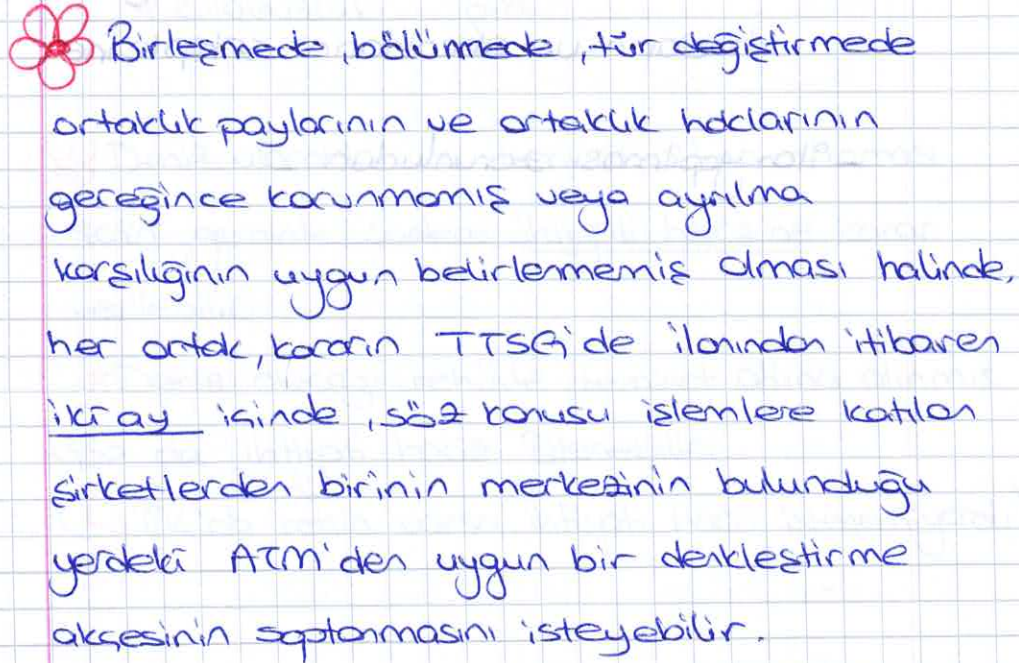 Birleşmede, bölünmede, tür değiştirmede
ortaklık paylarının ve ortaklık haklarının
gereğince korunmamış veya ayrılma
karşılığının uygun belirlenmemiş olması halinde,
her ortak, kararın TTSG'de ilanından itibaren
iki ay içinde, söz konusu işlemlere katılan
şirketlerden birinin merkezinin bulunduğu
yerdeki ATM'den uygun bir denkleştirme
akçesinin saptanmasını isteyebilir.